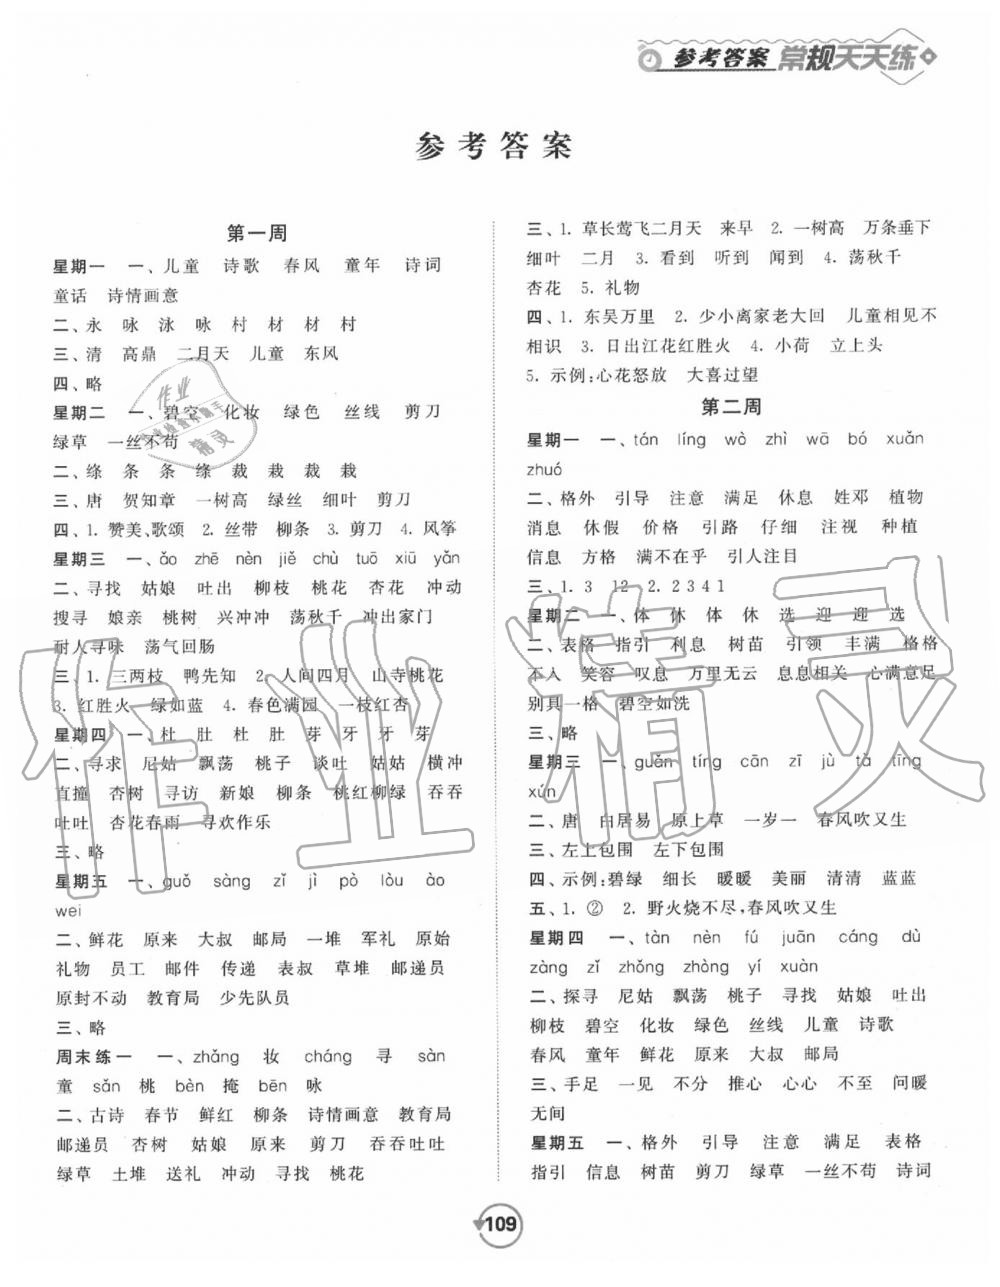 参考答案 常规天天练
参考答案
第一周
星期一 一、儿童 诗歌 春风 童年 诗词
童话 诗情画意
二、永 咏 泳 咏 村 材 材 村
三、清 高鼎 二月天 儿童 东风
四、略
星期二 一、碧空 化妆 绿色 丝线 剪刀
绿草 一丝不苟
二、绦 条 条 绦 裁 栽 栽 裁
三、唐 贺知章 一树高 绿丝 细叶 剪刀
四、1. 赞美、歌颂 2. 丝带 柳条 3. 剪刀 4. 风筝
星期三 一、ǎo zhē nèn jiě chù tuō xiū yǎn
二、寻找 姑娘 吐出 柳枝 桃花 杏花 冲动
搜寻 娘亲 桃树 兴冲冲 荡秋千 冲出家门
耐人寻味 荡气回肠
三、1. 三两枝 鸭先知 2. 人间四月 山寺桃花
3. 红胜火 绿如蓝 4. 春色满园 一枝红杏
星期四 一、杜 肚 杜 肚 芽 牙 牙 芽
二、寻求 尼姑 飘荡 桃子 谈吐 姑姑 横冲
直撞 杏树 寻访 新娘 柳条 桃红柳绿 吞吞
吐吐 杏花春雨 寻欢作乐
三、略
星期五 一、guǒ sàng zǐ jì pò lòu ào
wei
二、鲜花 原来 大叔 邮局 一堆 军礼 原始
礼物 员工 邮件 传递 表叔 草堆 邮递员
原封不动 教育局 少先队员
三、略
周末练一 一、zhǎng 妆 cháng 寻 sàn
童 sǎn 桃 bèn 掩 bēn 咏
二、古诗 春节 鲜红 柳条 诗情画意 教育局
邮递员 杏树 姑娘 原来 剪刀 吞吞吐吐
绿草 土堆 送礼 冲动 寻找 桃花
三、1. 草长莺飞二月天 来早 2. 一树高 万条垂下
细叶 二月 3. 看到 听到 闻到 4. 荡秋千
杏花 5. 礼物
四、1. 东吴万里 2. 少小离家老大回 儿童相见不
相识 3. 日出江花红胜火 4. 小荷 立上头
5. 示例:心花怒放 大喜过望
第二周
星期一 一、tán líng wò zhì wā bó xuǎn
zhuó
二、格外 引导 注意 满足 休息 姓邓 植物
消息 休假 价格 引路 仔细 注视 种植
信息 方格 满不在乎 引人注目
三、1. 3 12 2. 2 3 4 1
星期二 一、体 休 体 休 选 迎 迎 选
二、表格 指引 利息 树苗 引领 丰满 格格
不入 笑容 叹息 万里无云 息息相关 心满意足
别具一格 碧空如洗
三、略
星期三 一、guǎn tíng cān zǐ jù tà tīng
xún
二、唐 白居易 原上草 一岁一 春风吹又生
三、左上包围 左下包围
四、示例:碧绿 细长 暖暖 美丽 清清 蓝蓝
五、1. ② 2. 野火烧不尽,春风吹又生
星期四 一、tàn nèn fú juān cáng dù
zàng zǐ zhǒng zhòng yí xuàn
二、探寻 尼姑 飘荡 桃子 寻找 姑娘 吐出
柳枝 碧空 化妆 绿色 丝线 儿童 诗歌
春风 童年 鲜花 原来 大叔 邮局
三、手足 一见 不分 推心 心心 不至 问暖
无间
星期五 一、格外 引导 注意 满足 表格
指引 信息 树苗 剪刀 绿草 一丝不苟 诗词
109
作业精灵